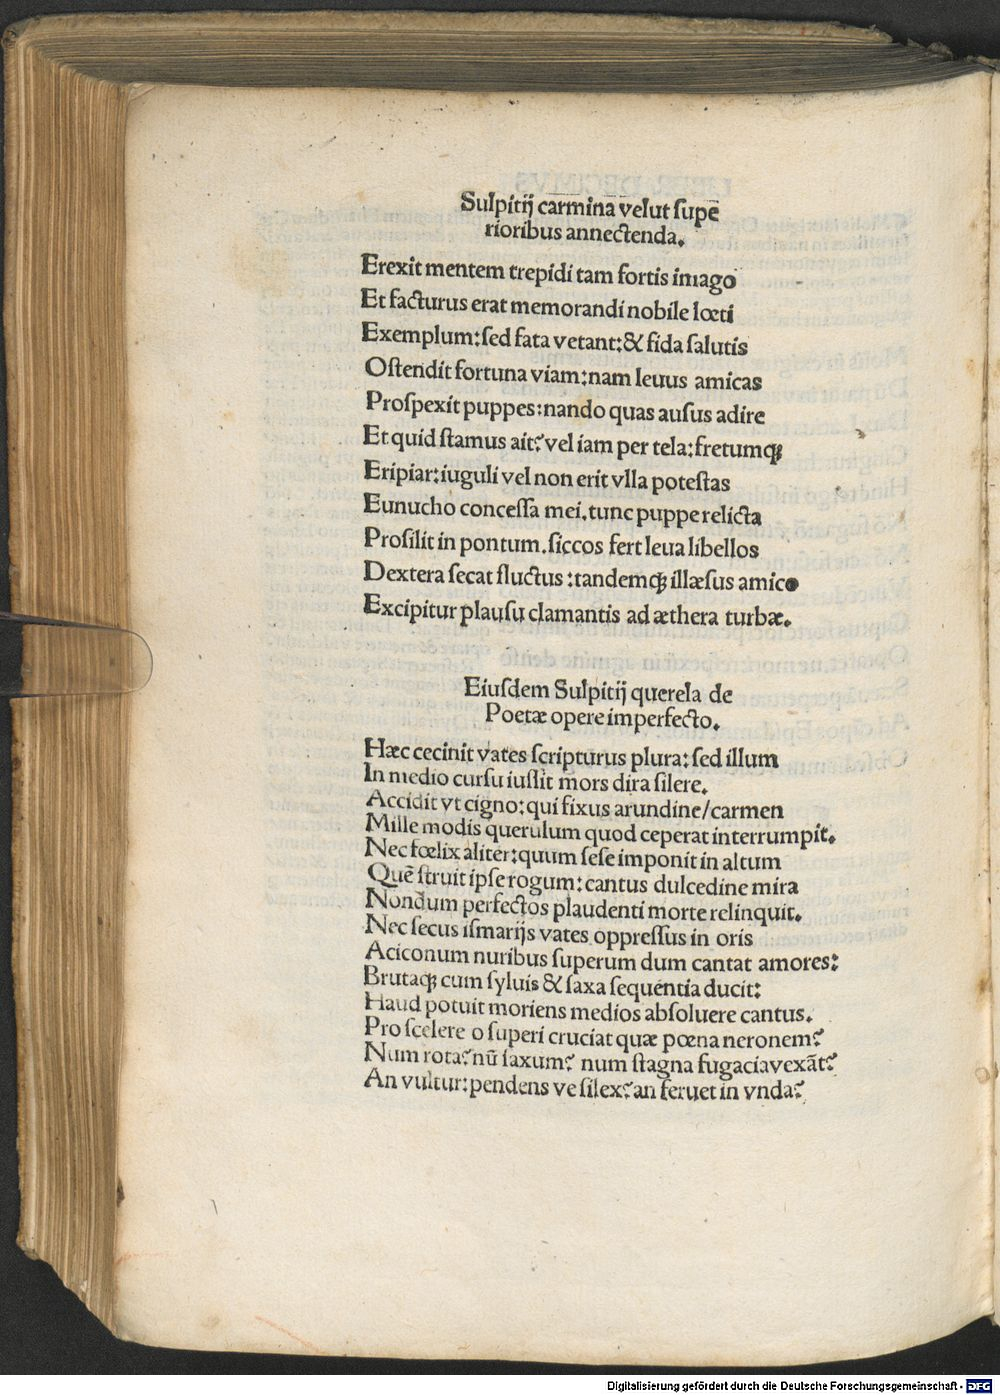 Sulpitij carmina velut supē
rioribus annectenda.
Erexit mentem trepidi tam fortis imago
Et facturus erat memorandi nobile lœti
Exemplum: sed fata vetant: & fida salutis
Ostendit fortuna viam: nam leuus amicas
Prospexit puppes: nando quas ausus adire
Et quid stamus ait? vel iam per tela: fretumqꝫ
Eripiar: iuguli vel non erit vlla potestas
Eunucho concessa mei. tunc puppe relicta
Prosilit in pontum. siccos fert leua libellos
Dextera secat fluctus: tandemqꝫ illæsus amico
Excipitur plausu clamantis ad æthera turbæ.
Eiusdem Sulpitij querela de
Poetæ opere imperfecto.
Hæc cecinit vates scripturus plura: sed illum
In medio cursu iussit mors dira silere.
Accidit vt cigno: qui fixus arundine/carmen
Mille modis querulum quod ceperat interrumpit.
Nec fœlix aliter: quum sese imponit in altum
Quē struit ipse rogum: cantus dulcedine mira
Nondum perfectos plaudenti morte relinquit.
Nec secus ismarijs vates oppressus in oris
Aciconum nuribus superum dum cantat amores:
Brutaqꝫ cum syluis & saxa sequentia ducit:
Haud potuit moriens medios absoluere cantus.
Pro scelere o superi cruciat quæ pœna neronem?
Num rota? nū saxum? num stagna fugacia vexāt?
An vultur: pendens ve silex? an feruet in vnda?
Digitalisierung gefördert durch die Deutsche Forschungsgemeinschaft - DFG